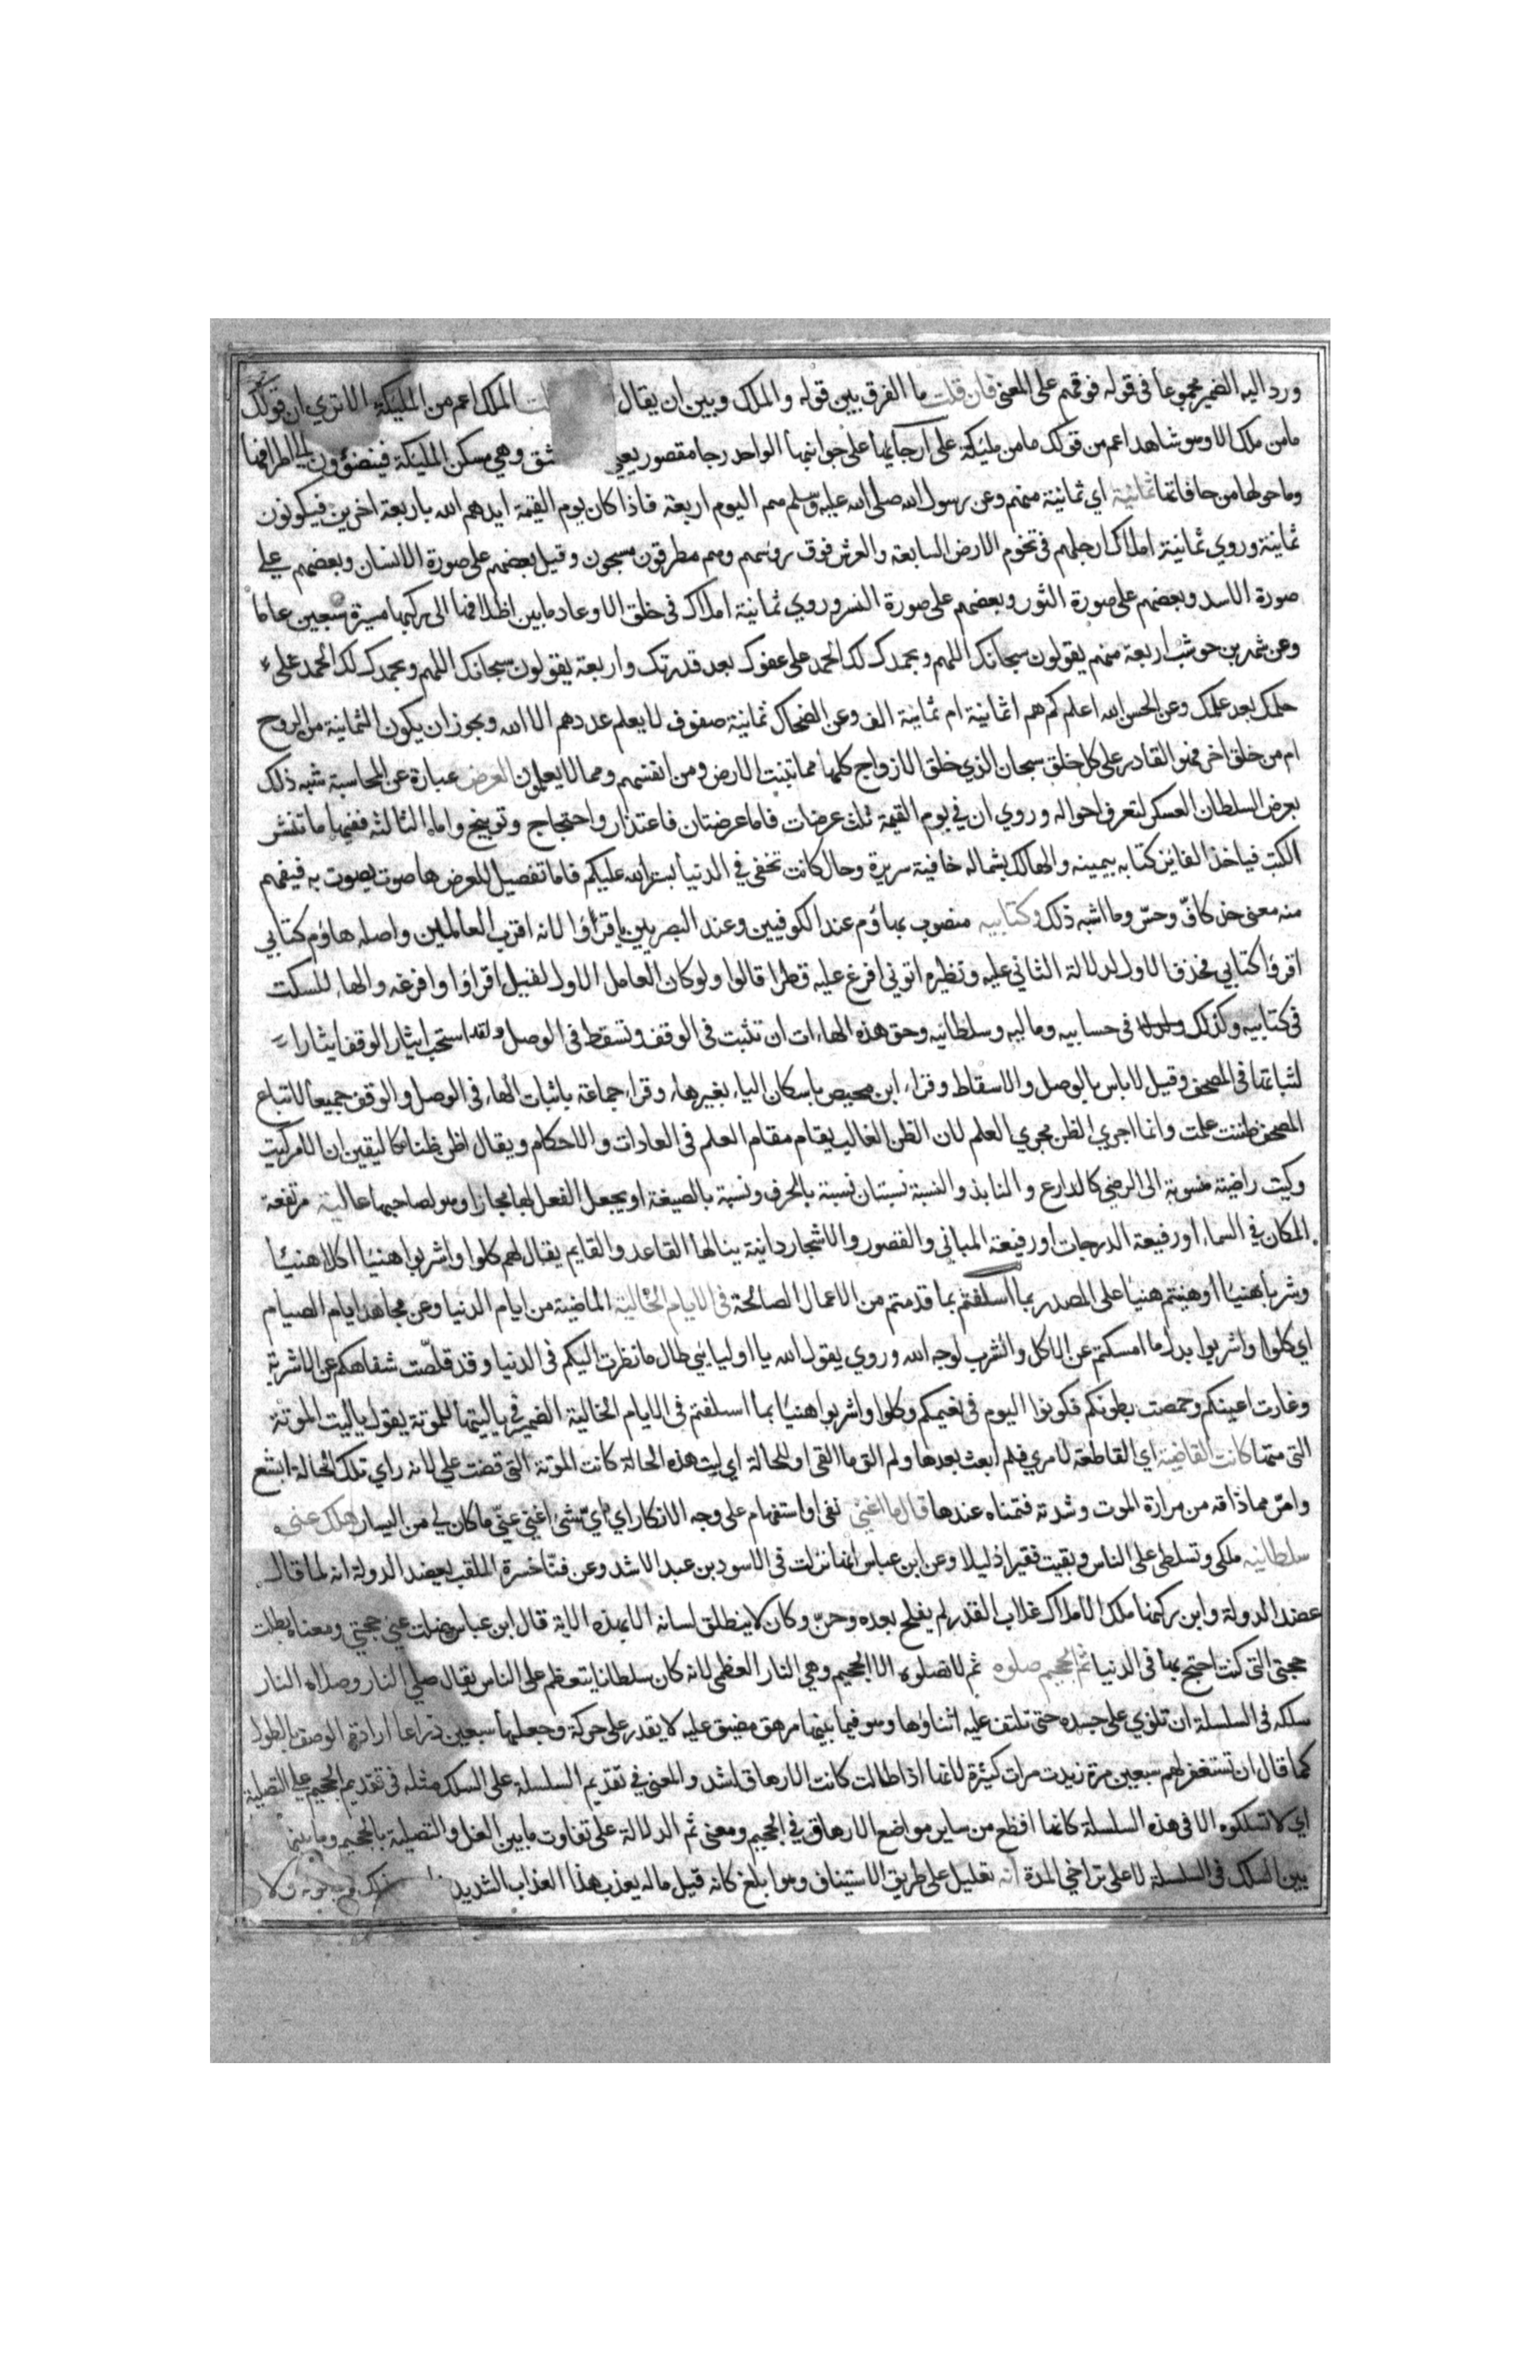 ورد اليه الضمير مجموعا في قوله فوقهم على المعنى فان قلت ما الفرق بين قوله والملك وبين ان يقال الملك اعم من الملئكة الا تري ان قولك
ما من ملك الا وهو شاهد اعم من قولك ما من ملئكة على ارجايها على جوانبها الواحد رجا مقصور يعني شق وهي مسكن الملئكة فينضوون الي اطرافها
وما حولها من حافاتها ثمانية اي ثمانية منهم وعن رسول الله صلى الله عليه وسلم هم اليوم اربعة فاذا كان يوم القيمة ايدهم الله باربعة اخرين فيكونون
ثمانية وروي ثمانية املاك ارجلهم في تخوم الارض السابعة والعرش فوق روسهم وهم مطرقون مسبحون وقيل بعضهم على صورة الانسان وبعضهم علي
صورة الاسد وبعضهم على صورة الثور وبعضهم على صورة النسر وروي ثمانية املاك في خلق الاوعاد ما بين اظلافها الى ركبها مسيرة سبعين عاما
وعن شهر بن حوشب اربعة منهم يقولون سبحانك اللهم وبحمدك لك الحمد على عفوك بعد قدرتك واربعة يقولون سبحانك اللهم وبحمدك لك الحمد على
حلمك بعد علمك وعن الحسن الله اعلم كم هم اثمانية ام ثمانية الف وعن الضحاك ثمانية صفوف لا يعلم عددهم الا الله ويجوز ان يكون الثمانية من الروح
ام من خلق اخر فهو القادر على كل خلق سبحان الذي خلق الازواج كلها مما تنبت الارض ومن انفسهم ومما لا يعلمون العرض عبارة عن المحاسبة شبه ذلك
بعرض السلطان العسكر لتعرف احواله وروي ان في يوم القيمة ثلث عرضات فاما عرضتان فاعتذار واحتجاج وتوبيخ واما الثالثه ففيها ما تنشر
الكتب فياخذ الفايز كتابه بيمينه والهالك بشماله خافية سريرة وحال كانت تخفى في الدنيا بستر الله عليكم فاما تفصيل للعرض ها صوت يصوت به فيفهم
منه معنى خذ كافّ وحسّ وما اشبه ذلك وكتابيه منصوب بهاؤم عند الكوفيين وعند البصريين باقرؤا لانه اقرب العاملين واصله هاؤم كتابي
اقرؤا كتابي فحذف الاول لدلالة الثاني عليه ونظيره اتوني افرغ عليه قطرا قالوا ولو كان العامل الاول لقيل اقراؤا وافرغه والهاء للسكت
في كتابيه وكذلك في حسابيه وماليه وسلطانيه وحق هذه الهاءات ان تثبت في الوقف وتسقط في الوصل ولقد استحب ايثار الوقف ايثارا
لثباتها في المصحف وقيل لا باس بالوصل والاسقاط وقراء ابن محيصن باسكان الياء بغيرهاء وقراء جماعة باثبات الهاء في الوصل والوقف جميعا لاتباع
المصحف ظننت علمت وانما اجري الظن مجري العلم لان الظن الغالب يقام مقام العلم في العادات والاحكام ويقال اظن ظنا كاليقين ان الامر كيت
وكيت راضية منسوبة الى الرضي كالدارع والنابذ والنسبة نسبتان نسبة بالحرف ونسبة بالصيغة او يجعل الفعل لها مجازا وهو لصاحبها عالية مرتفعة
المكان في السماء او رفيعة الدرجات او رفيعة المباني والقصور والاشجار دانية ينالها القاعد والقايم يقال لهم كلوا واشربوا هنيئا اكلا هنيئا
وشربا هنيئا او هنيتم هنيئا على المصدر بما اسلفتم بما قدمتم من الاعمال الصالحة في الايام الخالية الماضية من ايام الدنيا وعن مجاهد ايام الصيام
اي كلوا واشربوا بدل ما امسكتم عن الاكل والشرب لوجه الله وروي يقول الله يا اوليايي طال ما نظرت اليكم في الدنيا وقد قلصت شفاهكم عن الاشربة
وغارت اعينكم وخمصت بطونكم فكونوا اليوم في نعيمكم وكلوا واشربوا هنيئا بما اسلفتم في الايام الخالية الضمير في ياليتها للموتة يقول يا ليت الموتة
التي متها كانت القاضية اي القاطعة لامري فلم ابعث بعدها ولم الق ما القى او للحالة اي ليت هذه الحالة كانت الموتة التي قضت علي لانه راي تلك الحالة ابشع
وامرّ مما ذاقه من مرارة الموت وشدته فتمناه عندها قال ما اغني نفي او استفهام على وجه الانكار اي ايّ شيء اغنى عنّي ما كان لي من اليسار هلك عني
سلطانيه ملكي وتسلطي على الناس وبقيت فقيرا ذليلا وعن ابن عباس انها نزلت في الاسود بن عبد الاشد وعن فنّاخسرة الملقب بعضد الدولة انه لما قال
عضد الدولة وابن ركنها ملك الاملاك غلاب القدر لم يفلح بعده وجنّ وكان لا ينطلق لسانه الا بهذه الاية قال ابن عباس ضلت عني حجتي ومعناه بطلت
حجتي التي كنت احتج بها في الدنيا ثم الجحيم صلوه ثم لا تصلوه الا الجحيم وهي النار العظمي لانه كان سلطانا يتعظم على الناس يقال صلي النار وصلاه النار
سلكه في السلسلة ان تلوي على جسده حتى تلتف عليه اثناؤها وهو فيما بينها مرهق مضيق عليه لا يقدر على حركة وجعلها سبعين ذراعا ارادة الوصف بالطول
كما قال ان تستغفر لهم سبعين مرة يريد مرات كثيرة لانها اذا طالت كانت الارهاق اشد والمعني في تقديم السلسلة على السلك مثله في تقديم الجحيم علي التصلية
اي لا تسلكوه الا في هذه السلسلة كانها افظع من ساير مواضع الارهاق في الجحيم ومعنى ثم الدلالة على تفاوت ما بين الغل والتصلية بالجحيم وما بينها
بين السلك في السلسلة لا على تراخي المدة انه تعليل على طريق الاستيناف وهو ابلغ كانه قيل ما له يعذب هذا العذاب الشديد